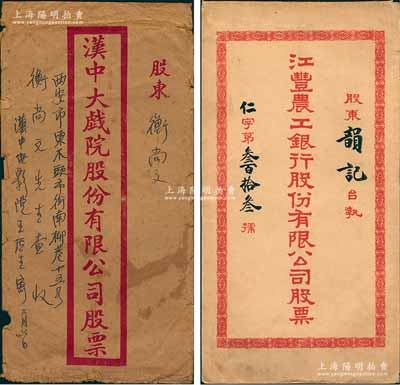 上海陽明拍賣
www.yangmingauction.com
股東 衡尚文
漢中大戲院股份有限公司股票
西安市東木頭市街南柳巷十五号
衡尚文先生查收
漢中電影院
上海陽明拍賣
www.yangmingauction.com
股東 韻記 台執
江豐農工銀行股份有限公司股票
仁字第叁百拾叁號